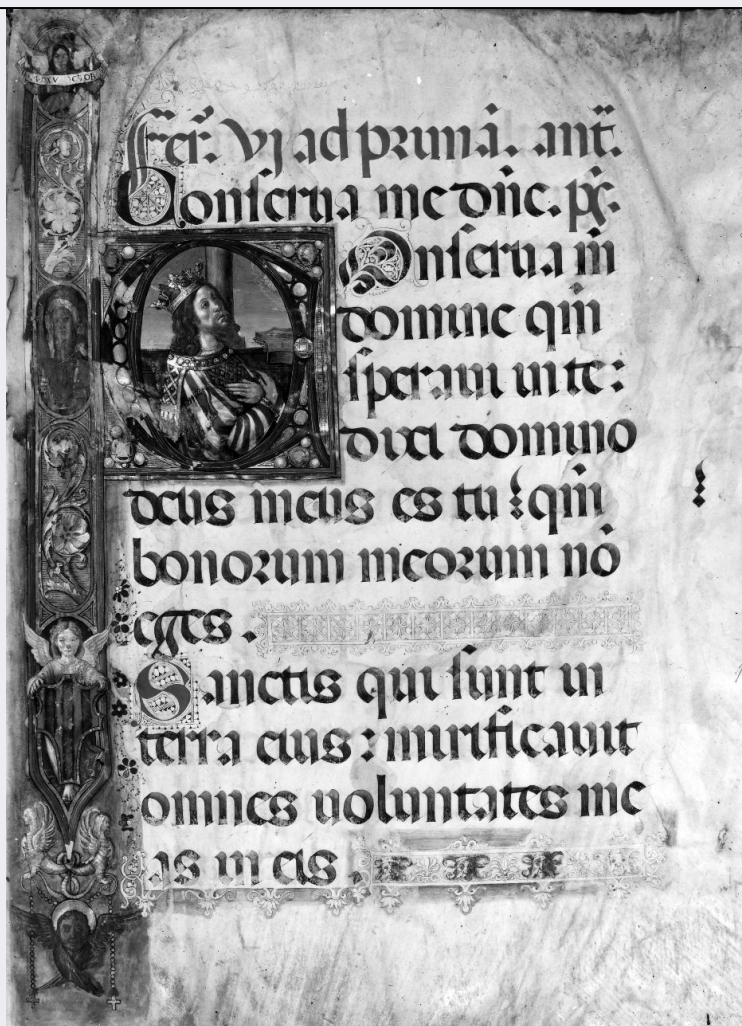 Fer̃. vj ad primā. ant̃.
Conserua me dñe. p̃s.
Onserua m̃
domine qm̃
speraui in te:
dixi domino
deus meus es tu: qm̃
bonorum meorum nō
eges.
Sanctis qui sunt in
terra eius: mirificauit
omnes uoluntates me
as in eis.